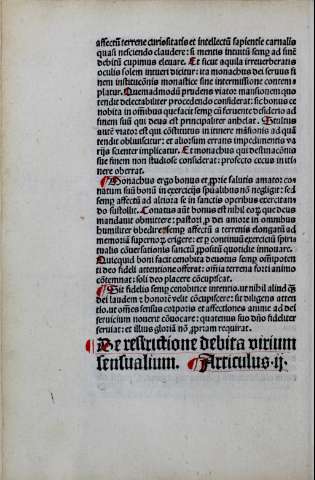 affectū terrene curiositatis et intellectū sapientie carnalis
quasi nesciendo claudere: si mentis intuitū semp ad finē
debitū cupimus eleuare. Et sicut aquila irreuerberatis
oculis solem intueri dicitur: ita monachus dei seruus fi
nem institutiōnis monastice sine intermissione contem
platur. Quemadmodū prudens viator mansionem quo
tendit delectabiliter procedendo considerat: sic bonus ce
nobita in omnibus que facit semp cū feruente desiderio ad
finem suū qui deus est principaliter anhelat. Stultus
autē viator est qui cōstitutus in itinere māsionis ad quā
tendit obliuiscitur: et aliorsum errans impedimentis va
rijs scienter implicatur. Et monachus qui destinatiōnis
sue finem non studiose considerat: profecto cecus in iti
nere oberrat.
¶ Monachus ergo bonus et pprie salutis amator co
natum suū bonū in exercicijs spūalibus nō negligit: sed
semp affectū ad altiora se in sanctis operibus exercitan
do sustollit. Conatus aūt bonus est nihil eoꝝ que deus
mandauit obmittere: pastori p dei amore in omnibus
humiliter obedire: semp affectū a terrenis elongatū ad
memoriā supernoꝝ erigere: et p continuū exercitiū spiri
tualis cōuersationis sanctū ppositū quotidie innouare.
Quicquid boni facit cenobita deuotus semp omnipoten
ti deo fideli attentione offerat: omnia terrena forti animo
cōtemnat: soli deo placere cōcupiscat.
¶ Sit fidelis semp cenobite intentio. ut nihil aliud q̄
dei laudem et honorē velit cōcupiscere: sit diligens atten
tio. ut omnes sensus corporis et affectiones anime ad dei
seruicium nouerit cōuocare: quatenus suo dn̄o fideliter
seruiat: et illius gloriā nō ppriam requirat.
¶ De restrictione debita virium
sensualium. ¶ Articulus .ij.